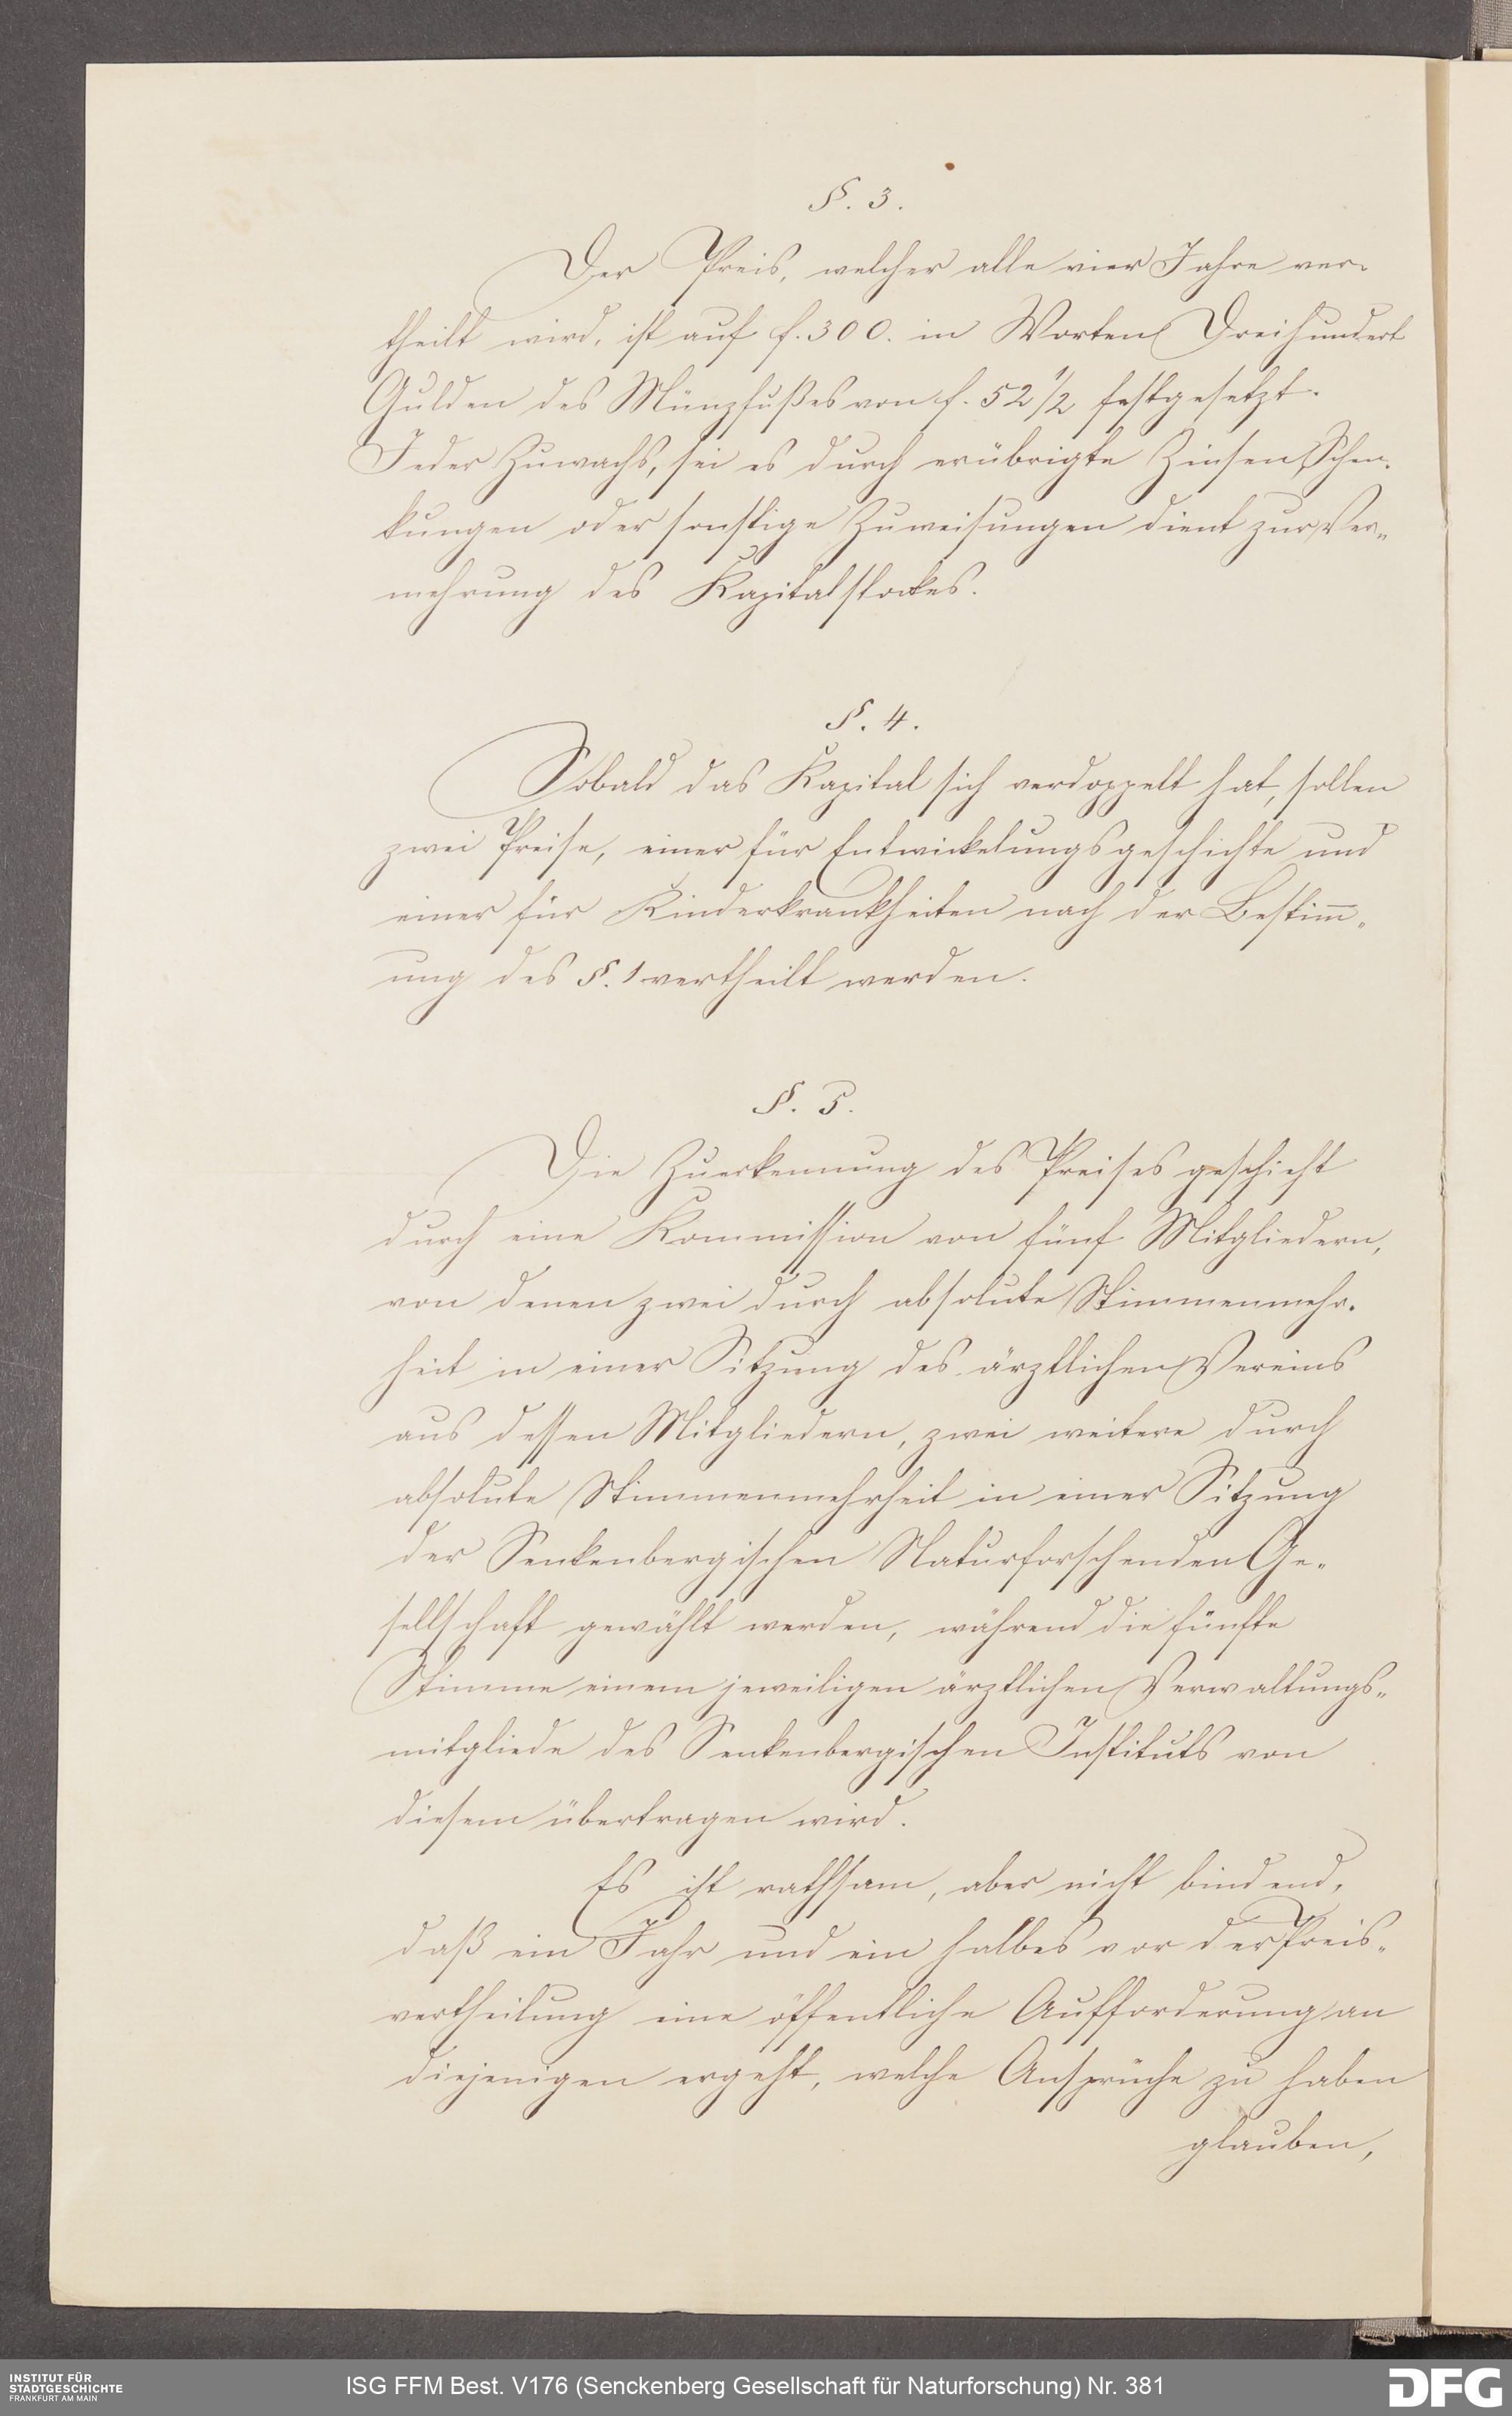 §. 3.
Der Preis, welcher alle vier Jahre ver-
theilt wird, ist auf f. 300. in Worten Dreihundert
Gulden des Münzfußes von f. 52 1/2 festgesetzt.
Jeder Zuwachs, sei es durch erübrigte Zinsen, Schen-
kungen oder sonstige Zuweisungen dient zur Ver-
mehrung des Kapitalstockes.
§. 4.
Sobald das Kapital sich verdoppelt hat, sollen
zwei Preise, einer für Entwickelungsgeschichte und
einer für Kinderkrankheiten nach der Bestim̅-
ung des §. 1 vertheilt werden.
§. 5.
Die Zuerkennung des Preises geschieht
durch eine Kommission von fünf Mitgliedern,
von denen zwei durch absolute Stimmenmehr-
heit in einer Sitzung des ärztlichen Vereins
aus dessen Mitgliedern, zwei weitere durch
absolute Stimmenmehrheit in einer Sitzung
der Senkenbergischen Naturforschenden Ge-
sellschaft gewählt werden, während die fünfte
Stimme einem jeweiligen ärztlichen Verwaltungs-
mitgliede des Senkenbergischen Instituts von
diesem übertragen wird.
Es ist rathsam, aber nicht bindend,
daß ein Jahr und ein halbes vor der Preis-
vertheilung eine öffentliche Aufforderung an
diejenigen ergeht, welche Ansprüche zu haben
glauben,
INSTITUT FÜR
STADTGESCHICHTE
FRANKFURT AM MAIN
ISG FFM Best. V176 (Senckenberg Gesellschaft für Naturforschung) Nr. 381
DFG